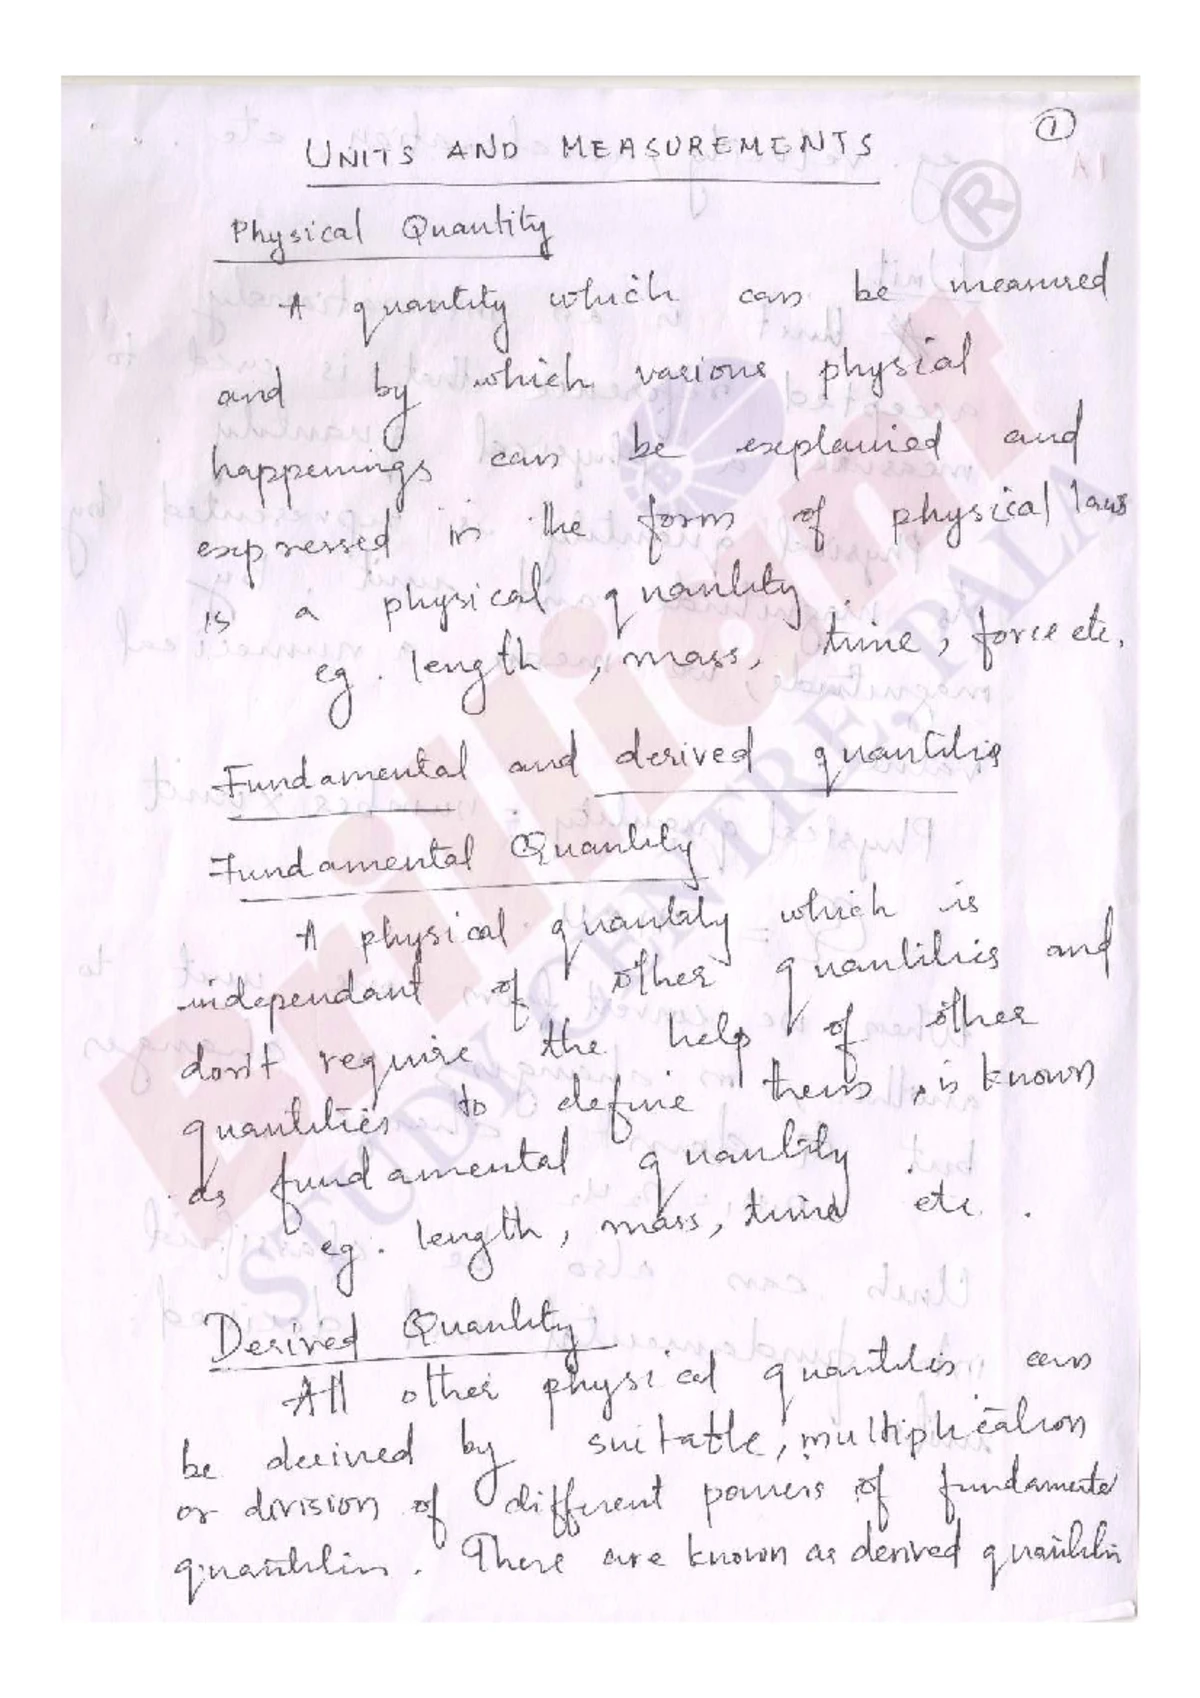 1
A1
UNITS AND MEASUREMENTS
Physical Quantity
A quantity which can be measured
and by which various physial
happenings can be explained and
expressed in the form of physical laws
is a physical quantity.
eg. length, mass, time, force etc.
Fundamental and derived quantities
Fundamental Quantity
A physical quantity which is
independant of other quantities and
don't require the help of other
quantities to define them, is known
as fundamental quantity.
eg. length, mass, time etc.
Derived Quantity
All other physical quantities can
be derived by suitable, multiplication
or division of different powers of fundamental
quantities. There are known as derived quantities
Brilliant
STUDY CENTRE, PALA
®